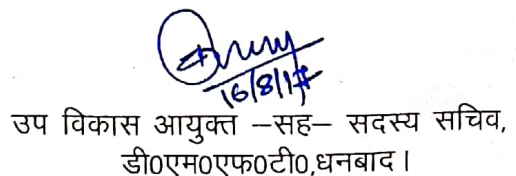 16/8/17
उप विकास आयुक्त –सह– सदस्य सचिव,
डी0एम0एफ0टी0,धनबाद।